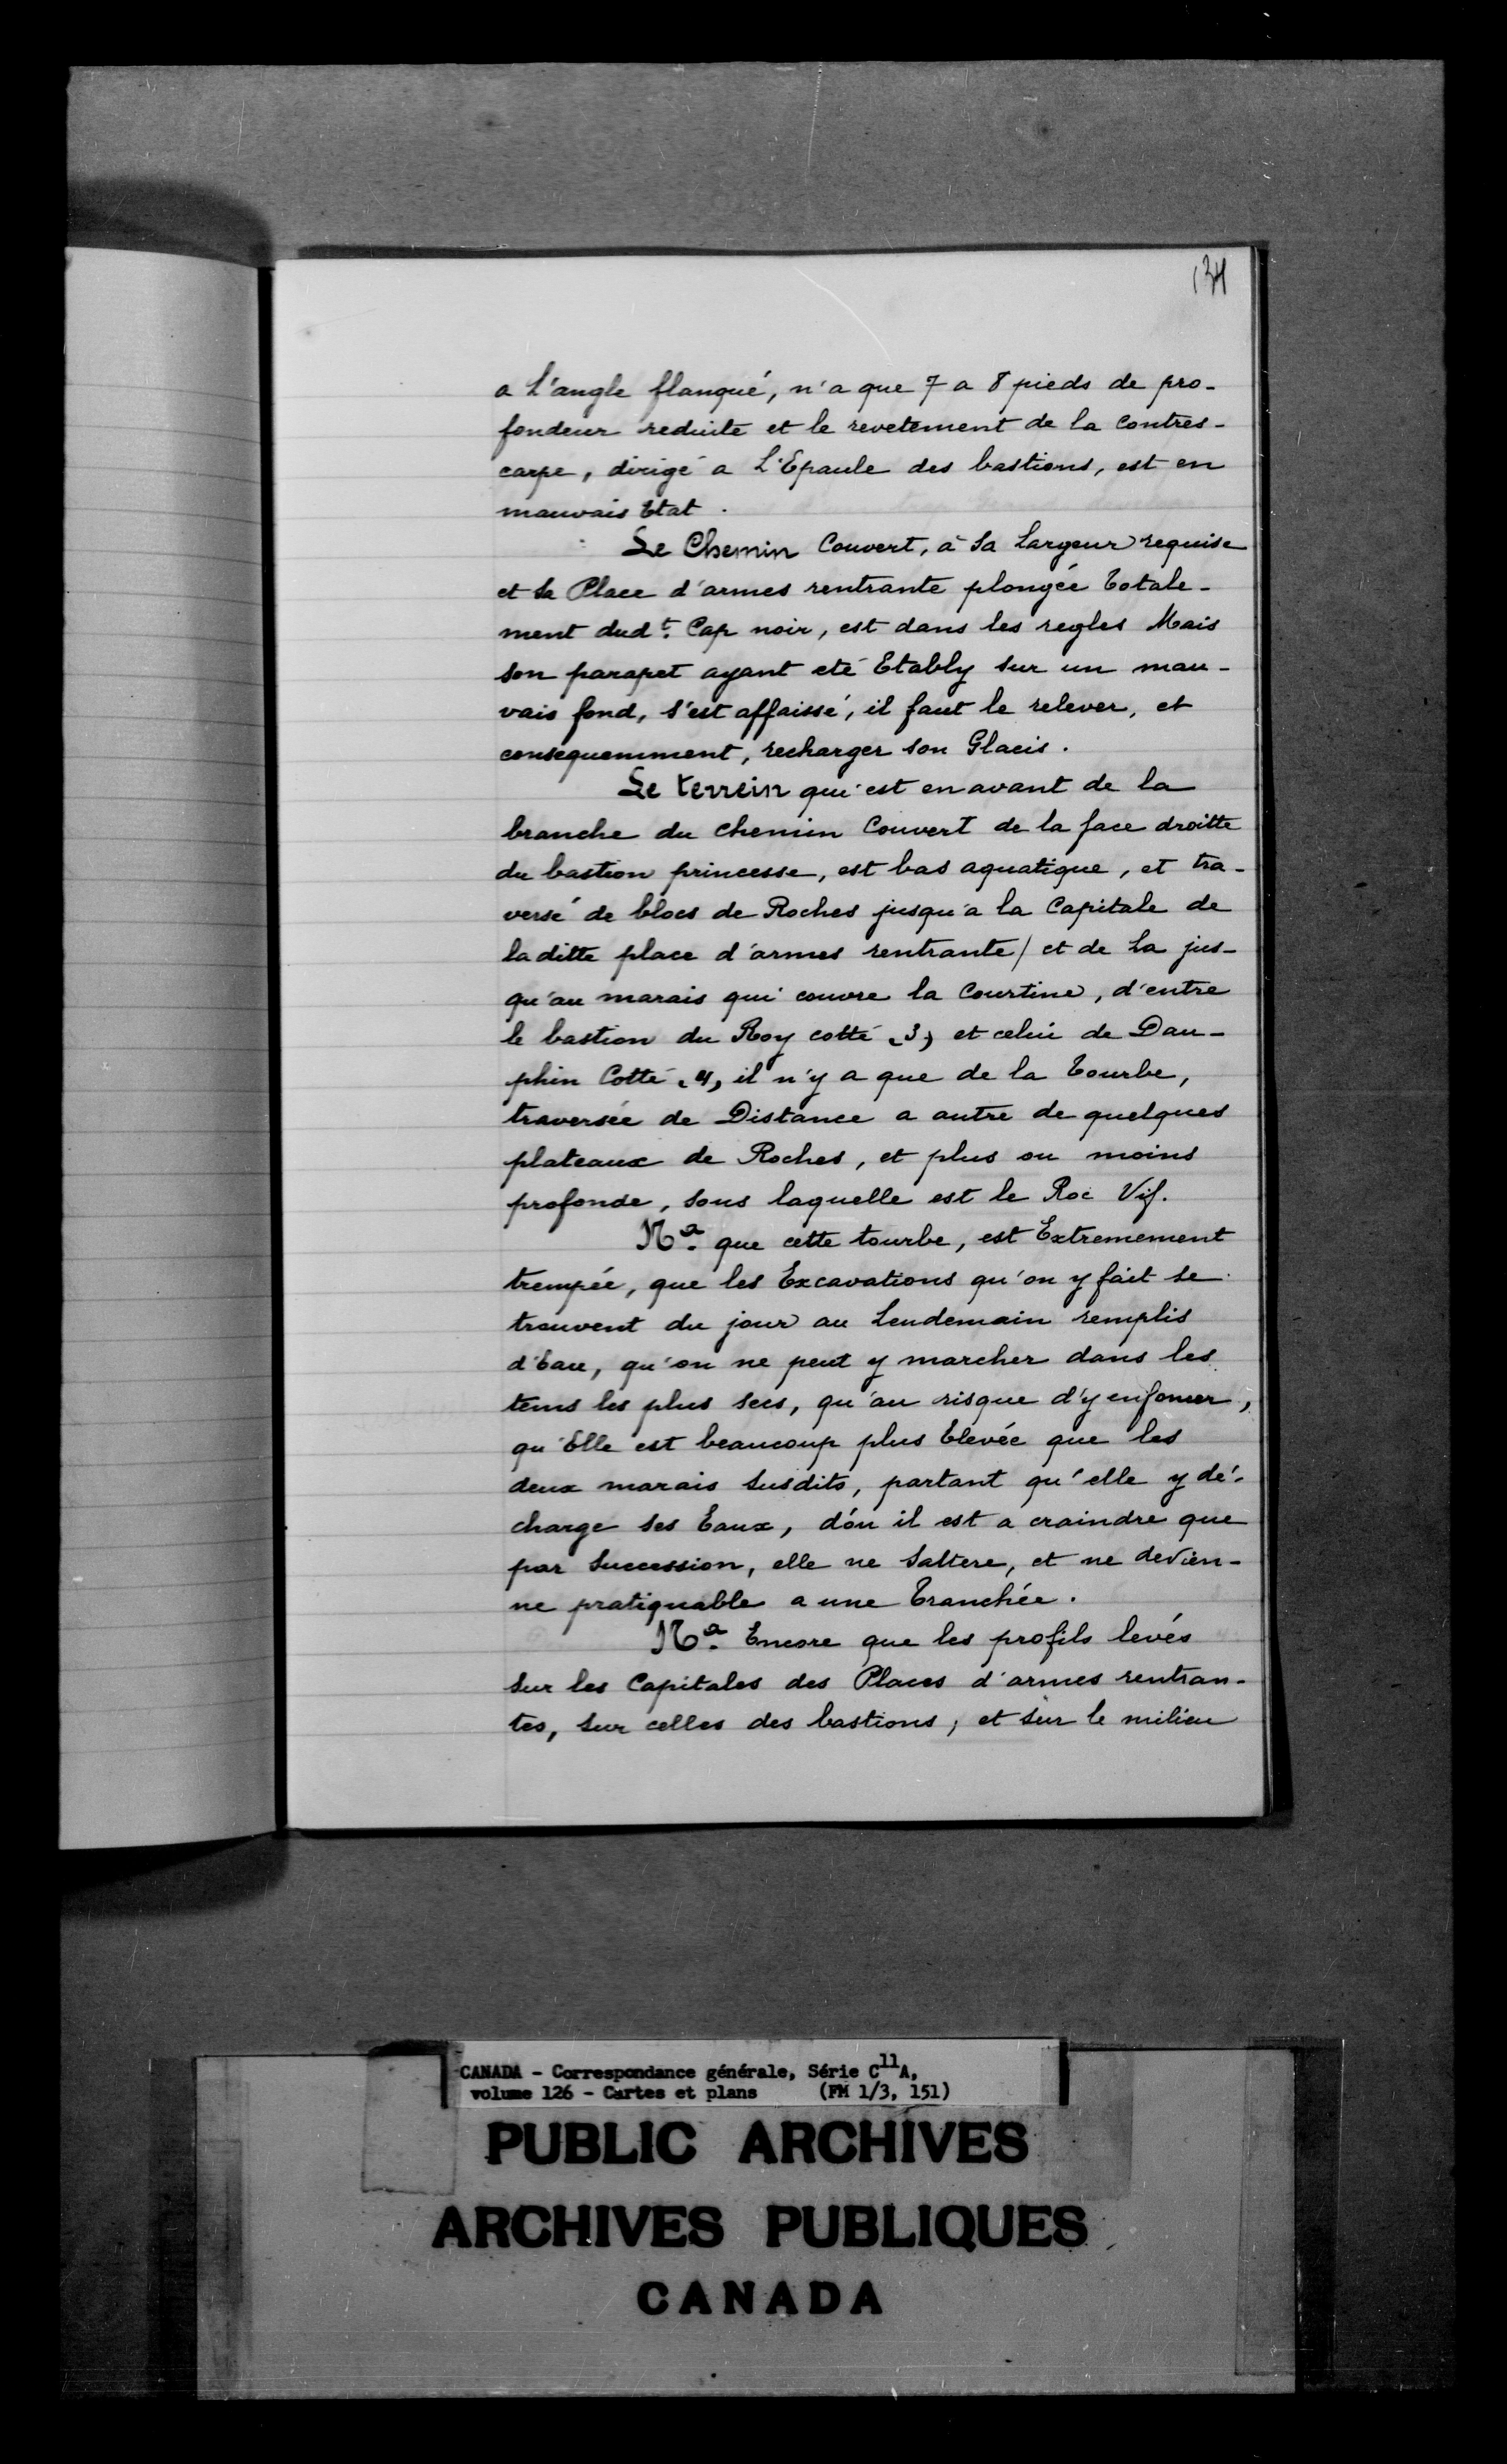 134
a L'angle flanqué, n'a que 7 a 8 pieds de pro-
fondeur reduite et le revetement de la Contres-
carpe, dirigé a L'Epaule des bastions, est en
mauvais Etat.
Le Chemin Couvert, à Sa Largeur requise
et Sa Place d'armes rentrante plongée Totale-
ment dud.t Cap noir, est dans les regles Mais
Son parapet ayant eté Etably Sur un mau-
vais fond, s'est affaissé, il faut le relever, et
consequemment, recharger Son Glacis.
Le terrein qui est en avant de la
branche du chemin Couvert de la face droitte
du bastion princesse, est bas aquatique, et tra-
versé de blocs de Roches jusqu'a la Capitale de
la ditte place d'armes rentrante / et de La jus-
qu'au marais qui couvre la Courtine, d'entre
le bastion du Roy cotté (3) et celui de Dau-
phin Cotté (4), il n'y a que de la Tourbe,
traversée de Distance a autre de quelques
plateaux de Roches, et plus ou moins
profonde, Sous laquelle est le Roc Vif.
N.a que cette tourbe, est Extremement
trempée, que les Excavations qu'on y fait se
trouvent du jour au Lendemain remplis
d'Eau, qu'on ne peut y marcher dans les
tems les plus secs, qu'au risque d'y enfoncer,
qu'Elle est beaucoup plus Elevée que les
deux marais Susdits, partant qu'elle y dé-
charge ses Eaux, d'ou il est a craindre que
par Succession, elle ne Saltere, et ne devien-
ne pratiquable a une Tranchée.
N.a Encore que les profils levés
Sur les Capitales des Places d'armes rentran-
tes, Sur celles des bastions, et Sur le milieu
CANADA - Correspondance générale, Série C11A,
volume 126 - Cartes et plans (FM 1/3, 151)
PUBLIC ARCHIVES
ARCHIVES PUBLIQUES
CANADA